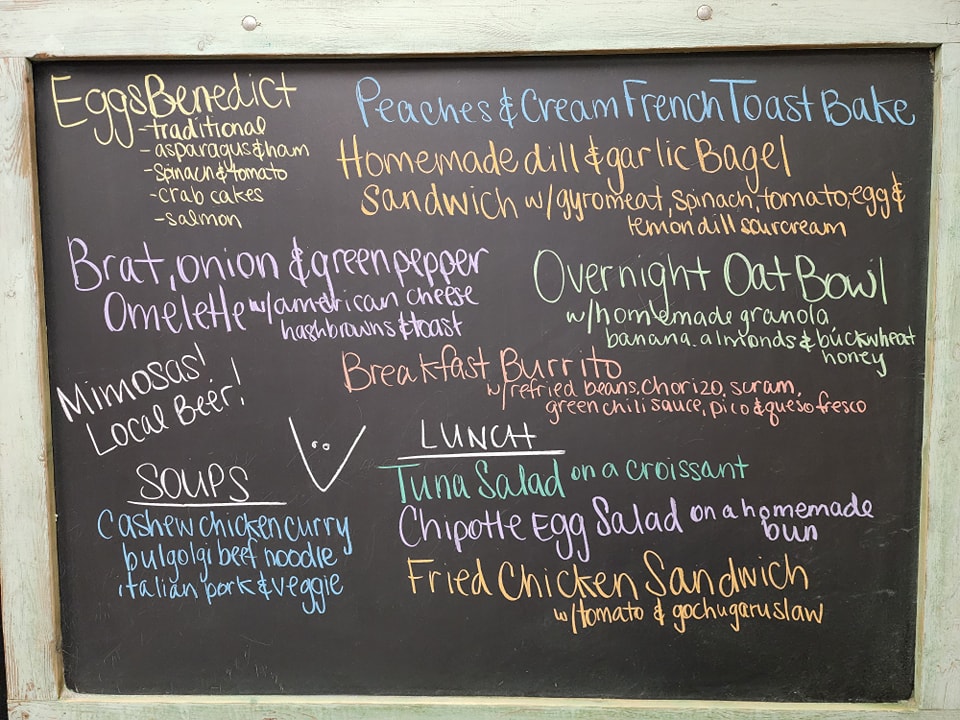 Eggs Benedict
-traditional
-asparagus & ham
-spinach & tomato
-crab cakes
-salmon
Peaches & Cream French Toast Bake
Homemade dill & garlic Bagel
Sandwich w/gyromeat, spinach, tomato, egg &
lemon dill sourcream
Brat, onion & green pepper
Omelette w/american cheese
hashbrowns & toast
Overnight Oat Bowl
w/homemade granola
banana, almonds & buckwheat
honey
Breakfast Burrito
w/refried beans, chorizo, scram,
green chili sauce, pico & queso fresco
Mimosas!
Local Beer!
SOUPS
Cashew chicken curry
bulgolgi beef noodle
italian pork & veggie
LUNCH
Tuna Salad on a croissant
Chipotle Egg Salad on a homemade
bun
Fried Chicken Sandwich
w/tomato & gochugaru slaw